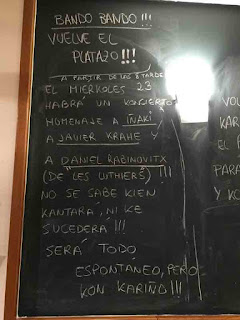 BANDO BANDO!!!
VUELVE EL
PLATAZO!!!
A PARTIR DE LAS 8 TARDE
EL MIERKOLES 23
HABRÁ UN KONCIERTO
HOMENAJE A IÑAKI,
A JAVIER KRAHE Y
A DANIEL RABINOVITX
(DE LES LUTHIERS) !!!
NO SE SABE KIEN
KANTARA, NI KE
SUCEDERA !!!
SERÁ TODO
ESPONTANEO, PERO
KON KARIÑO!!!
VO
KAR
EL M
PA
Y KO